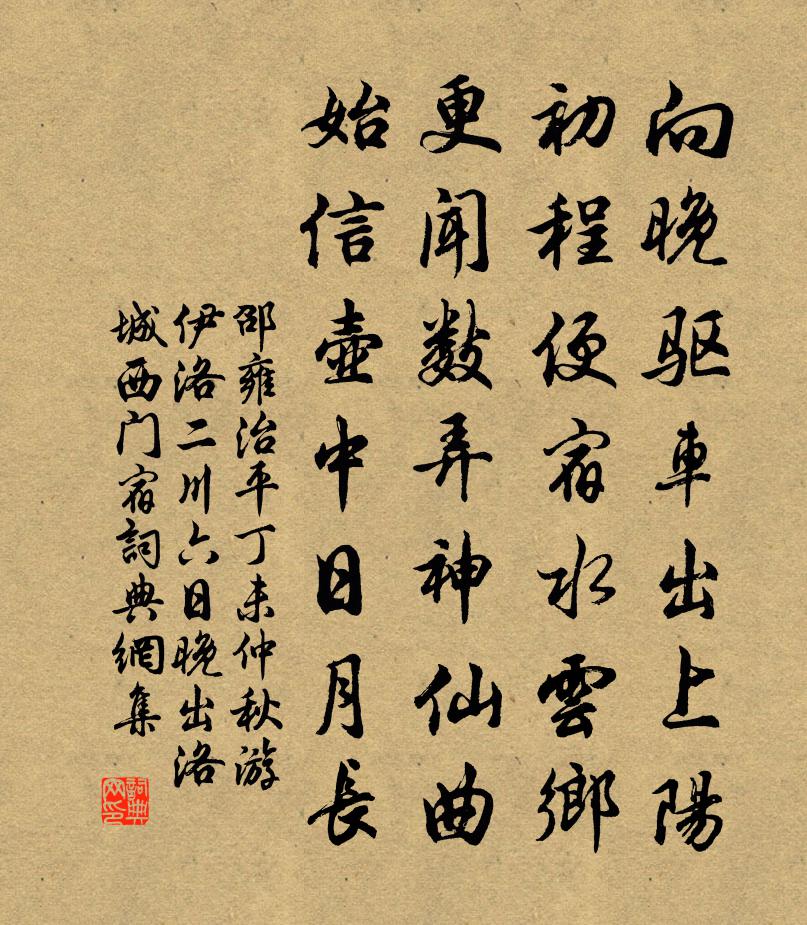 向晚驱車出上陽
初程便宿水雲鄉
更聞數弄神仙曲
始信壺中日月長
邵雍治平丁未仲秋游
伊洛二川六日晚出洛
城西门宿詞典網集
詞典网印